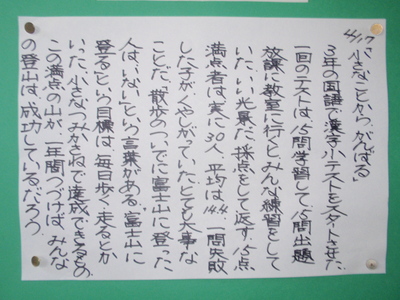 4/17「小さなことから、がんばる」
3年の国語で漢字小テストをスタートさせた
一回のテストは、15問学習して、15問出題
放課に教室に行くと、みんな練習をして
いた。いい光景だ。採点をして返す。15点
満点者は、実に30人。平均は14.4。一問失敗
した子が、くやしがっていた。とても大事な
ことだ。「散歩のついでに富士山に登った
人は、いない」という言葉がある。富士山に
登るという目標は、毎日歩く、走るとか
いった、小さなつみかさねで達成できるの
この満点の山が、一年間つづけば、みんな
の登山は、成功しているだろう。